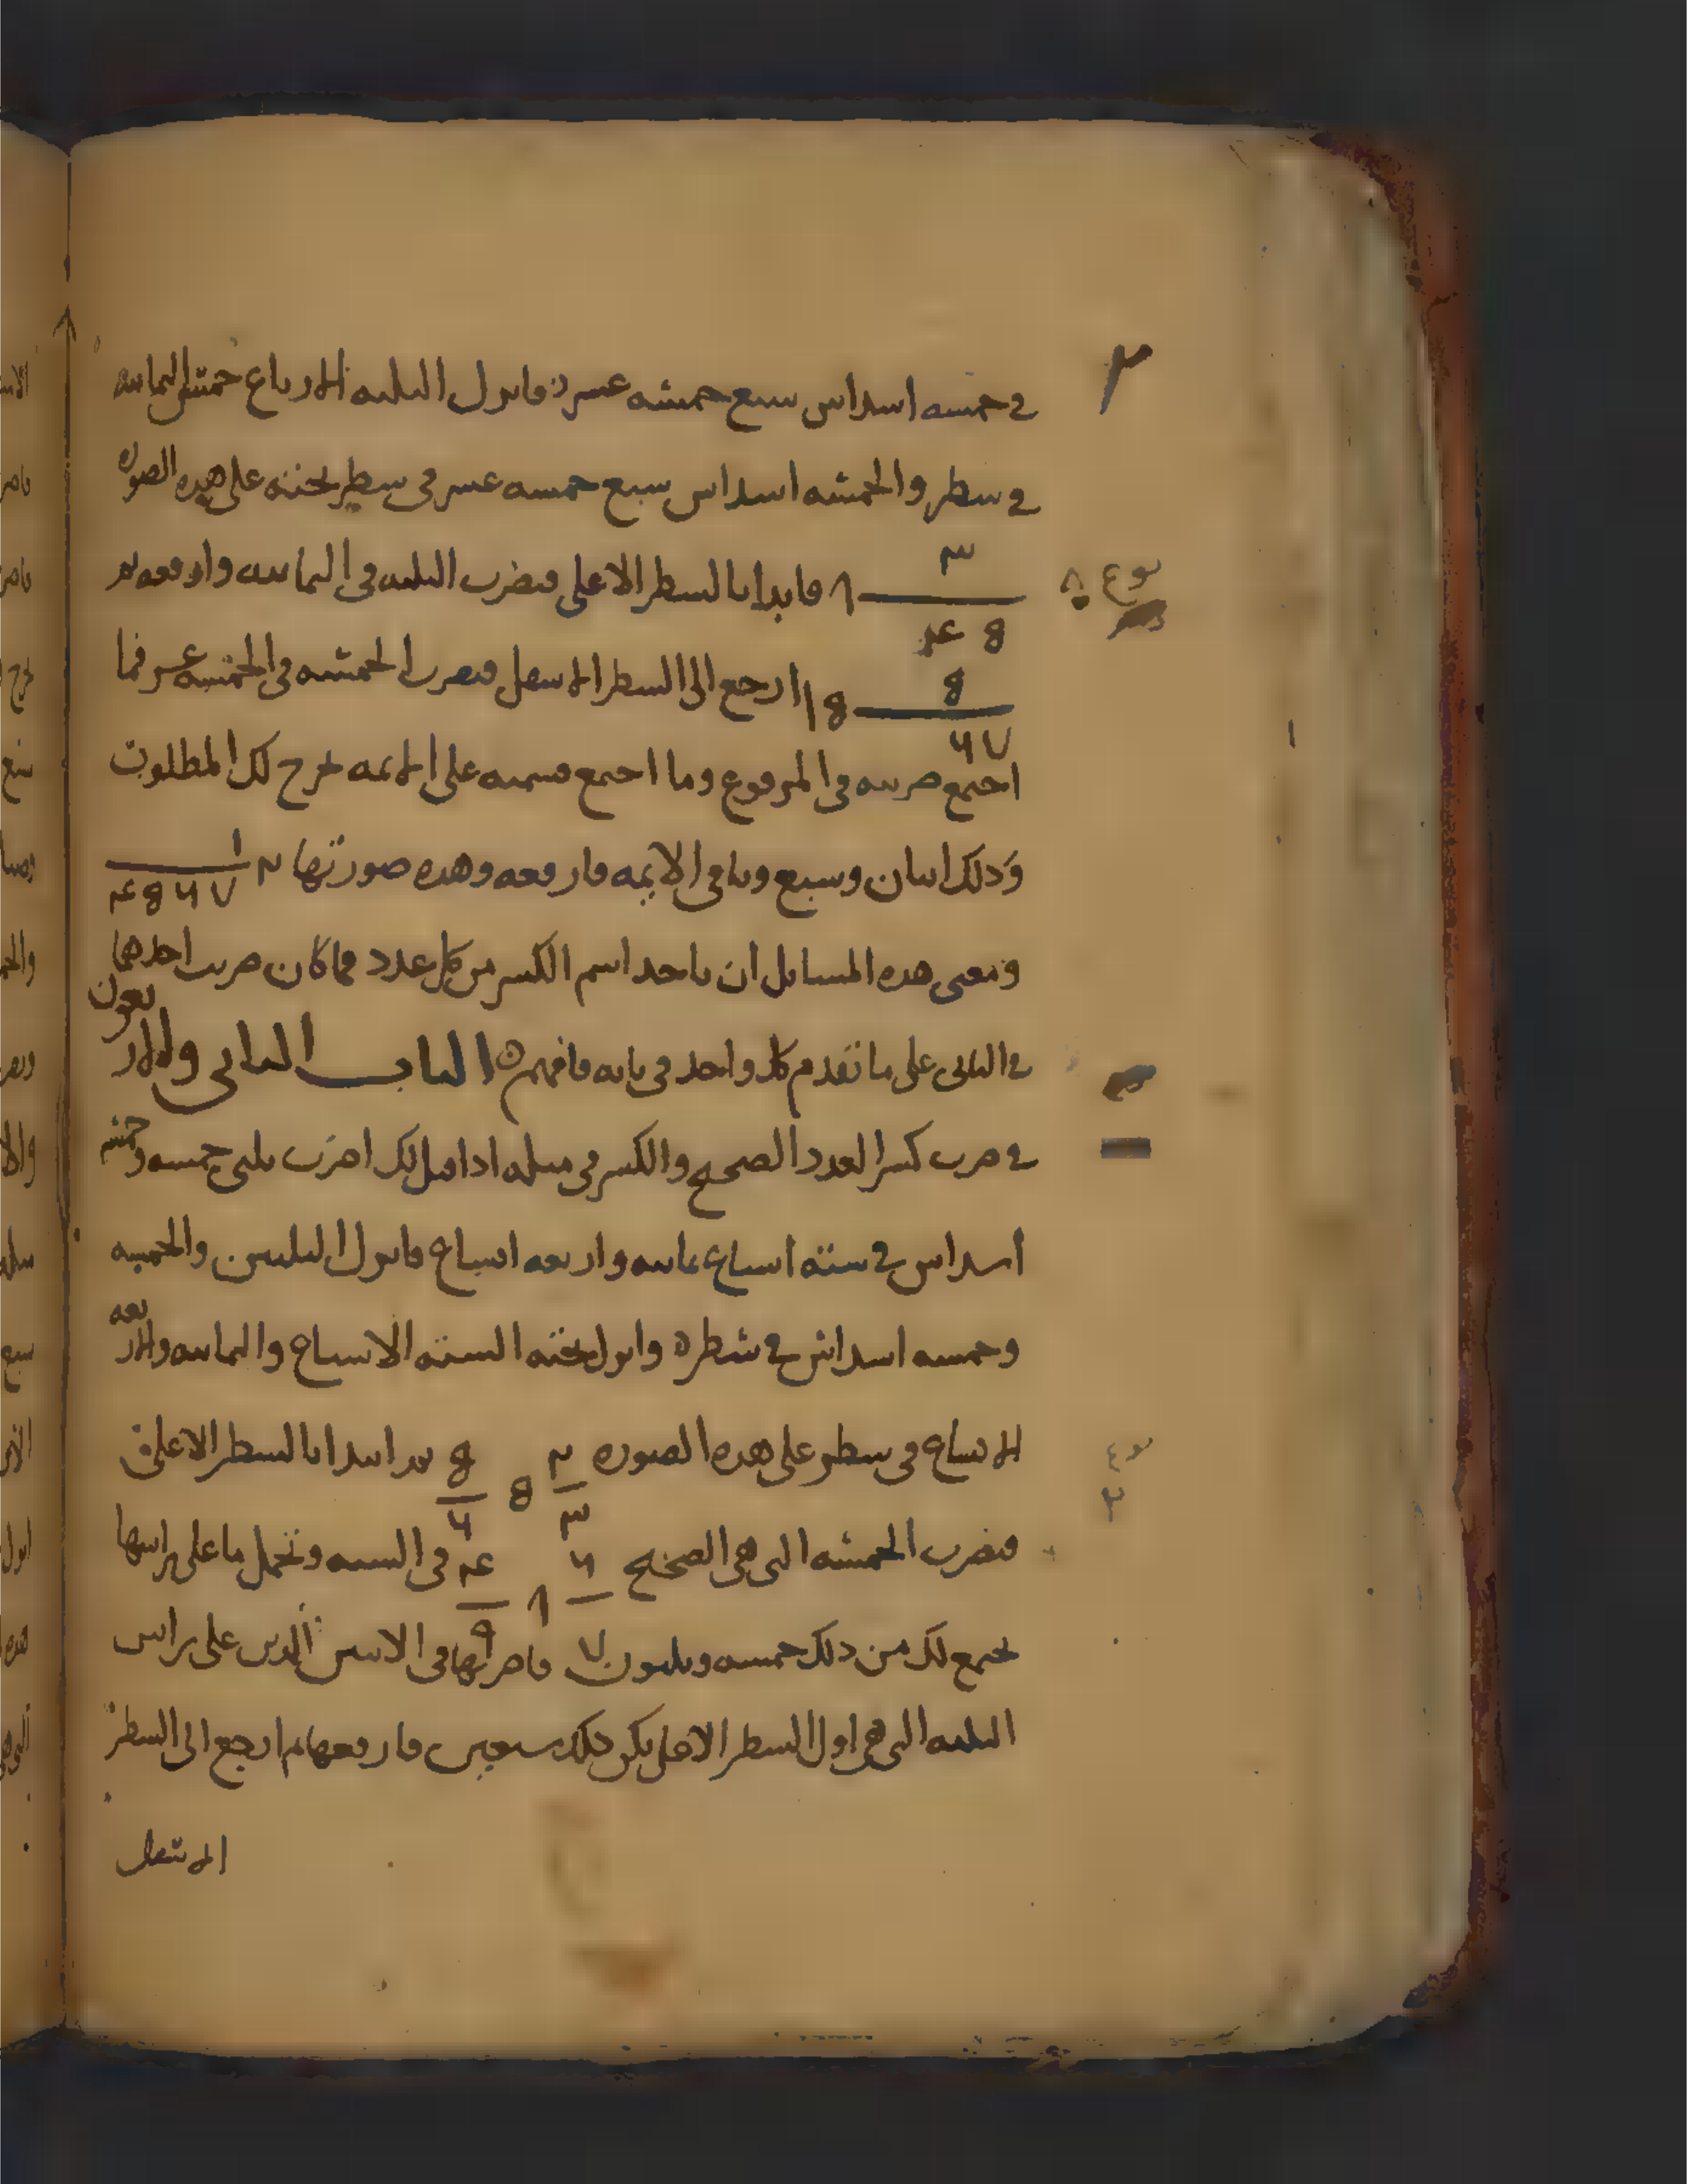 في خمسه اسداس سبع خمسه عشر فانزل الثلثه الارباع خمس الثمانيه
في سطر والخمسه اسداس سبع خمسه عشر في سطر تحته على هذه الصوره
٣ ٨ فابدا بالسطر الاعلى فتضرب الثلثه في الثمانيه وارفعه ثم
نوع
8 ع
8 8١ ارجع الى السطر الاسفل فتضرب الخمسه في الخمسه عشر فما
٧ ٦
اجتمع ضربته في المرفوع وما اجتمع قسمته على الايمه خرج لك المطلوب
وذلك اثنان وسبع وباقي الايمه فارفعه وهذه صورتها ٢ ١
٧ ٦ 8 ع
ومعنى هذه المسايل ان ياخذ اسم الكسر من كل عدد فما كان ضربت احدهما
في الثاني على ما تقدم كل واحد في بابه فافهم الباب الثاني والاربعون
في ضرب كسر العدد الصحيح والكسر في مثله اذا قيل لك اضرب ثلثي خمسه وخمسه
اسداس في سته اسباع ثمانيه واربعه اتساع فانزل الثلثين والخمسه
وخمسه اسداس في سطر وانزل تحته السته الاسباع والثمانيه والاربعه
الاتساع في سطر على هذه الصوره ٢ ٣ 8 8 ٦ تبدا بالسطر الاعلى
نوع
٢
فتضرب الخمسه التي هي الصحيح ٦ ٧ ٨ ع ٩ في السته وتحمل ما على راسها
تجمع لك من ذلك خمسه وثلثون فاضربها في الاثنين الذين على راس
الثلثه التي هي اول السطر الاعلى يكن ذلك سبعين فارفعها ثم ارجع الى السطر
الاسفل